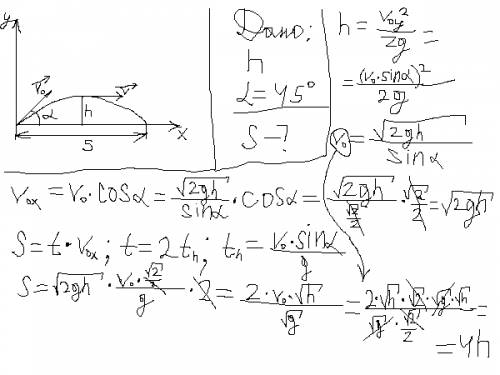 y
v₀
v
α
h
S
x
Дано:
h
α=45°
S-?
h = v₀y²/2g =
= (v₀·sinα)²/2g
v₀ = √2gh/sinα
v₀x = v₀·cosα = √2gh/sinα · cosα = √2gh/(√2/2) · √2/2 = √2gh
S = t·v₀x; t = 2tₕ; tₕ = v₀·sinα/g
S = √2gh · (v₀·√2/2)/g · 2 = 2·v₀·√h/√g = (2·√h·√2·√g·√h)/(√g·√2/2) =
= 4h